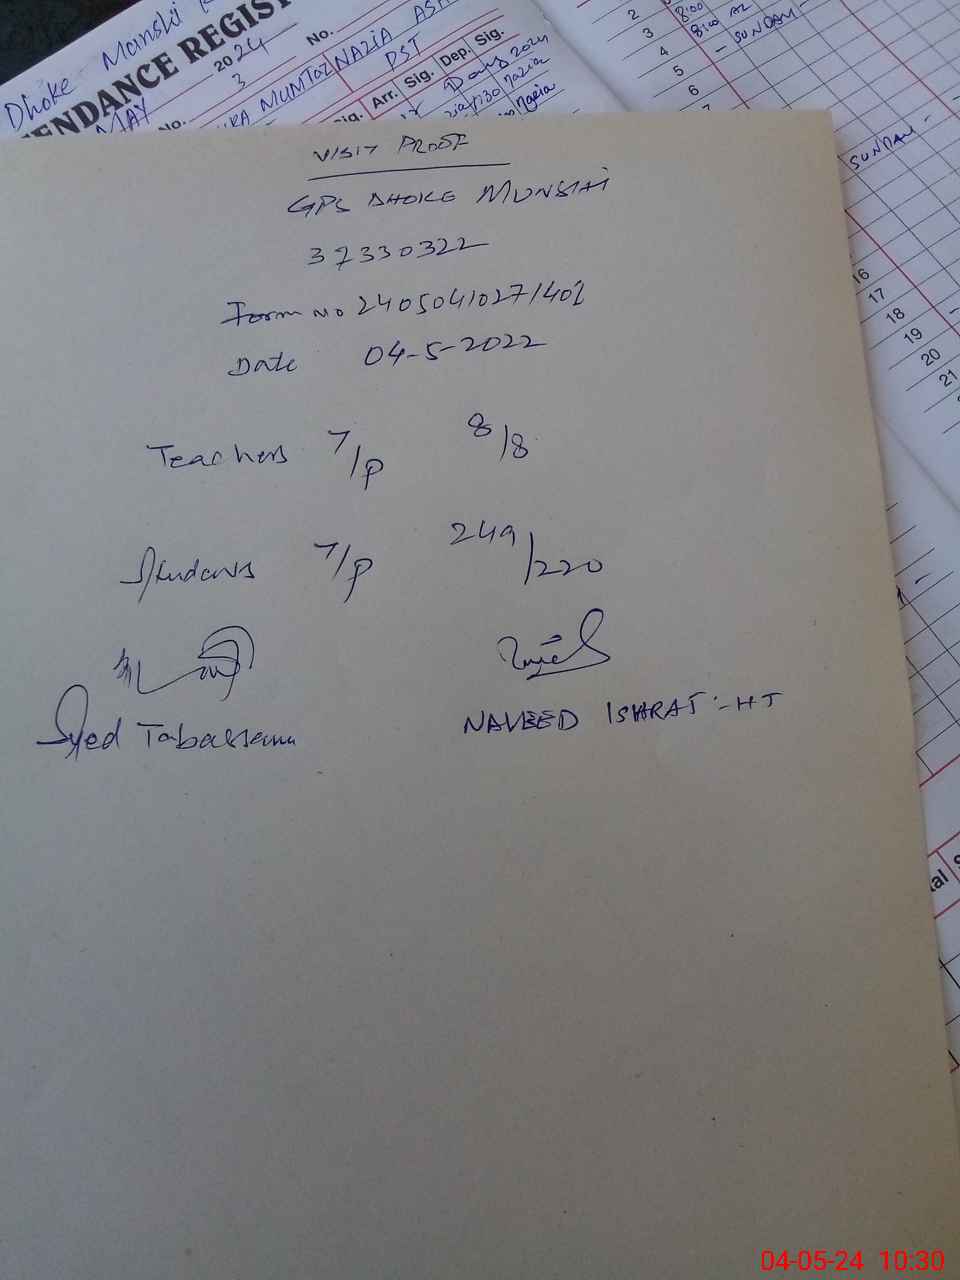 Dhoke Manshi
ENDANCE REGIST
MAY 2024 No.
No. 3
RA MUMTAZ NAZIA ASH
PST
Sig. Arr. Sig. Dep. Sig.
nazia
nazia
2 8:00
3 8:00
4 - SUNDAY -
5
6
7
SUNDAY -
16
17
18
19
20
21
VISIT PROOF
GPS DHOKE MUNSHI
37330322
Form No 24050410271402
Date 04-5-2022
Teachers T/P 8/8
Students T/P 249/220
Syed Tabassum
NAVEED ISHRAT :- HT
04-05-24 10:30